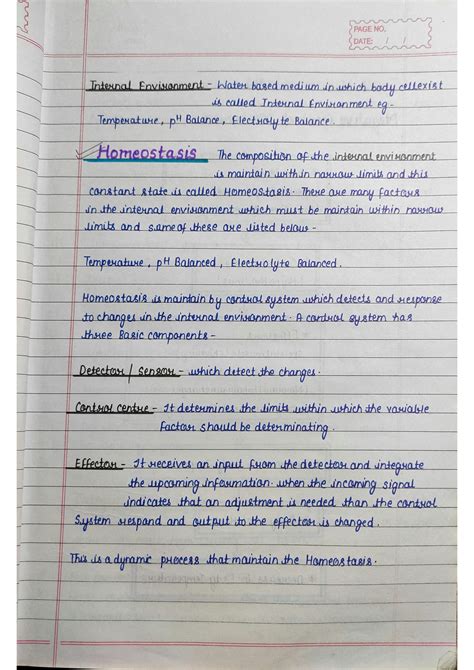 PAGE NO.
DATE: / /
Internal Environment - Water based medium in which body cell exist
is called Internal Environment eg-
Temperature, pH Balance, Electrolyte Balance
Homeostasis The composition of the internal environment
is maintain within narrow limits and this
constant state is called Homeostasis. There are many factors
in the internal environment which must be maintain within narrow
limits and some of these are listed below -
Temperature, pH Balanced, Electrolyte Balanced.
Homeostasis is maintain by control system which detects and response
to changes in the internal environment. A control system has
three Basic components -
Detector / Sensor - which detect the changes.
Control centre - It determines the limits within which the variable
factor should be determinating.
Effector - It receives an input from the detector and integrate
the upcoming information. when the incoming signal
indicates that an adjustment is needed than the control
System respand and output to the effector is changed.
This is a dynamic process that maintain the Homeostasis.